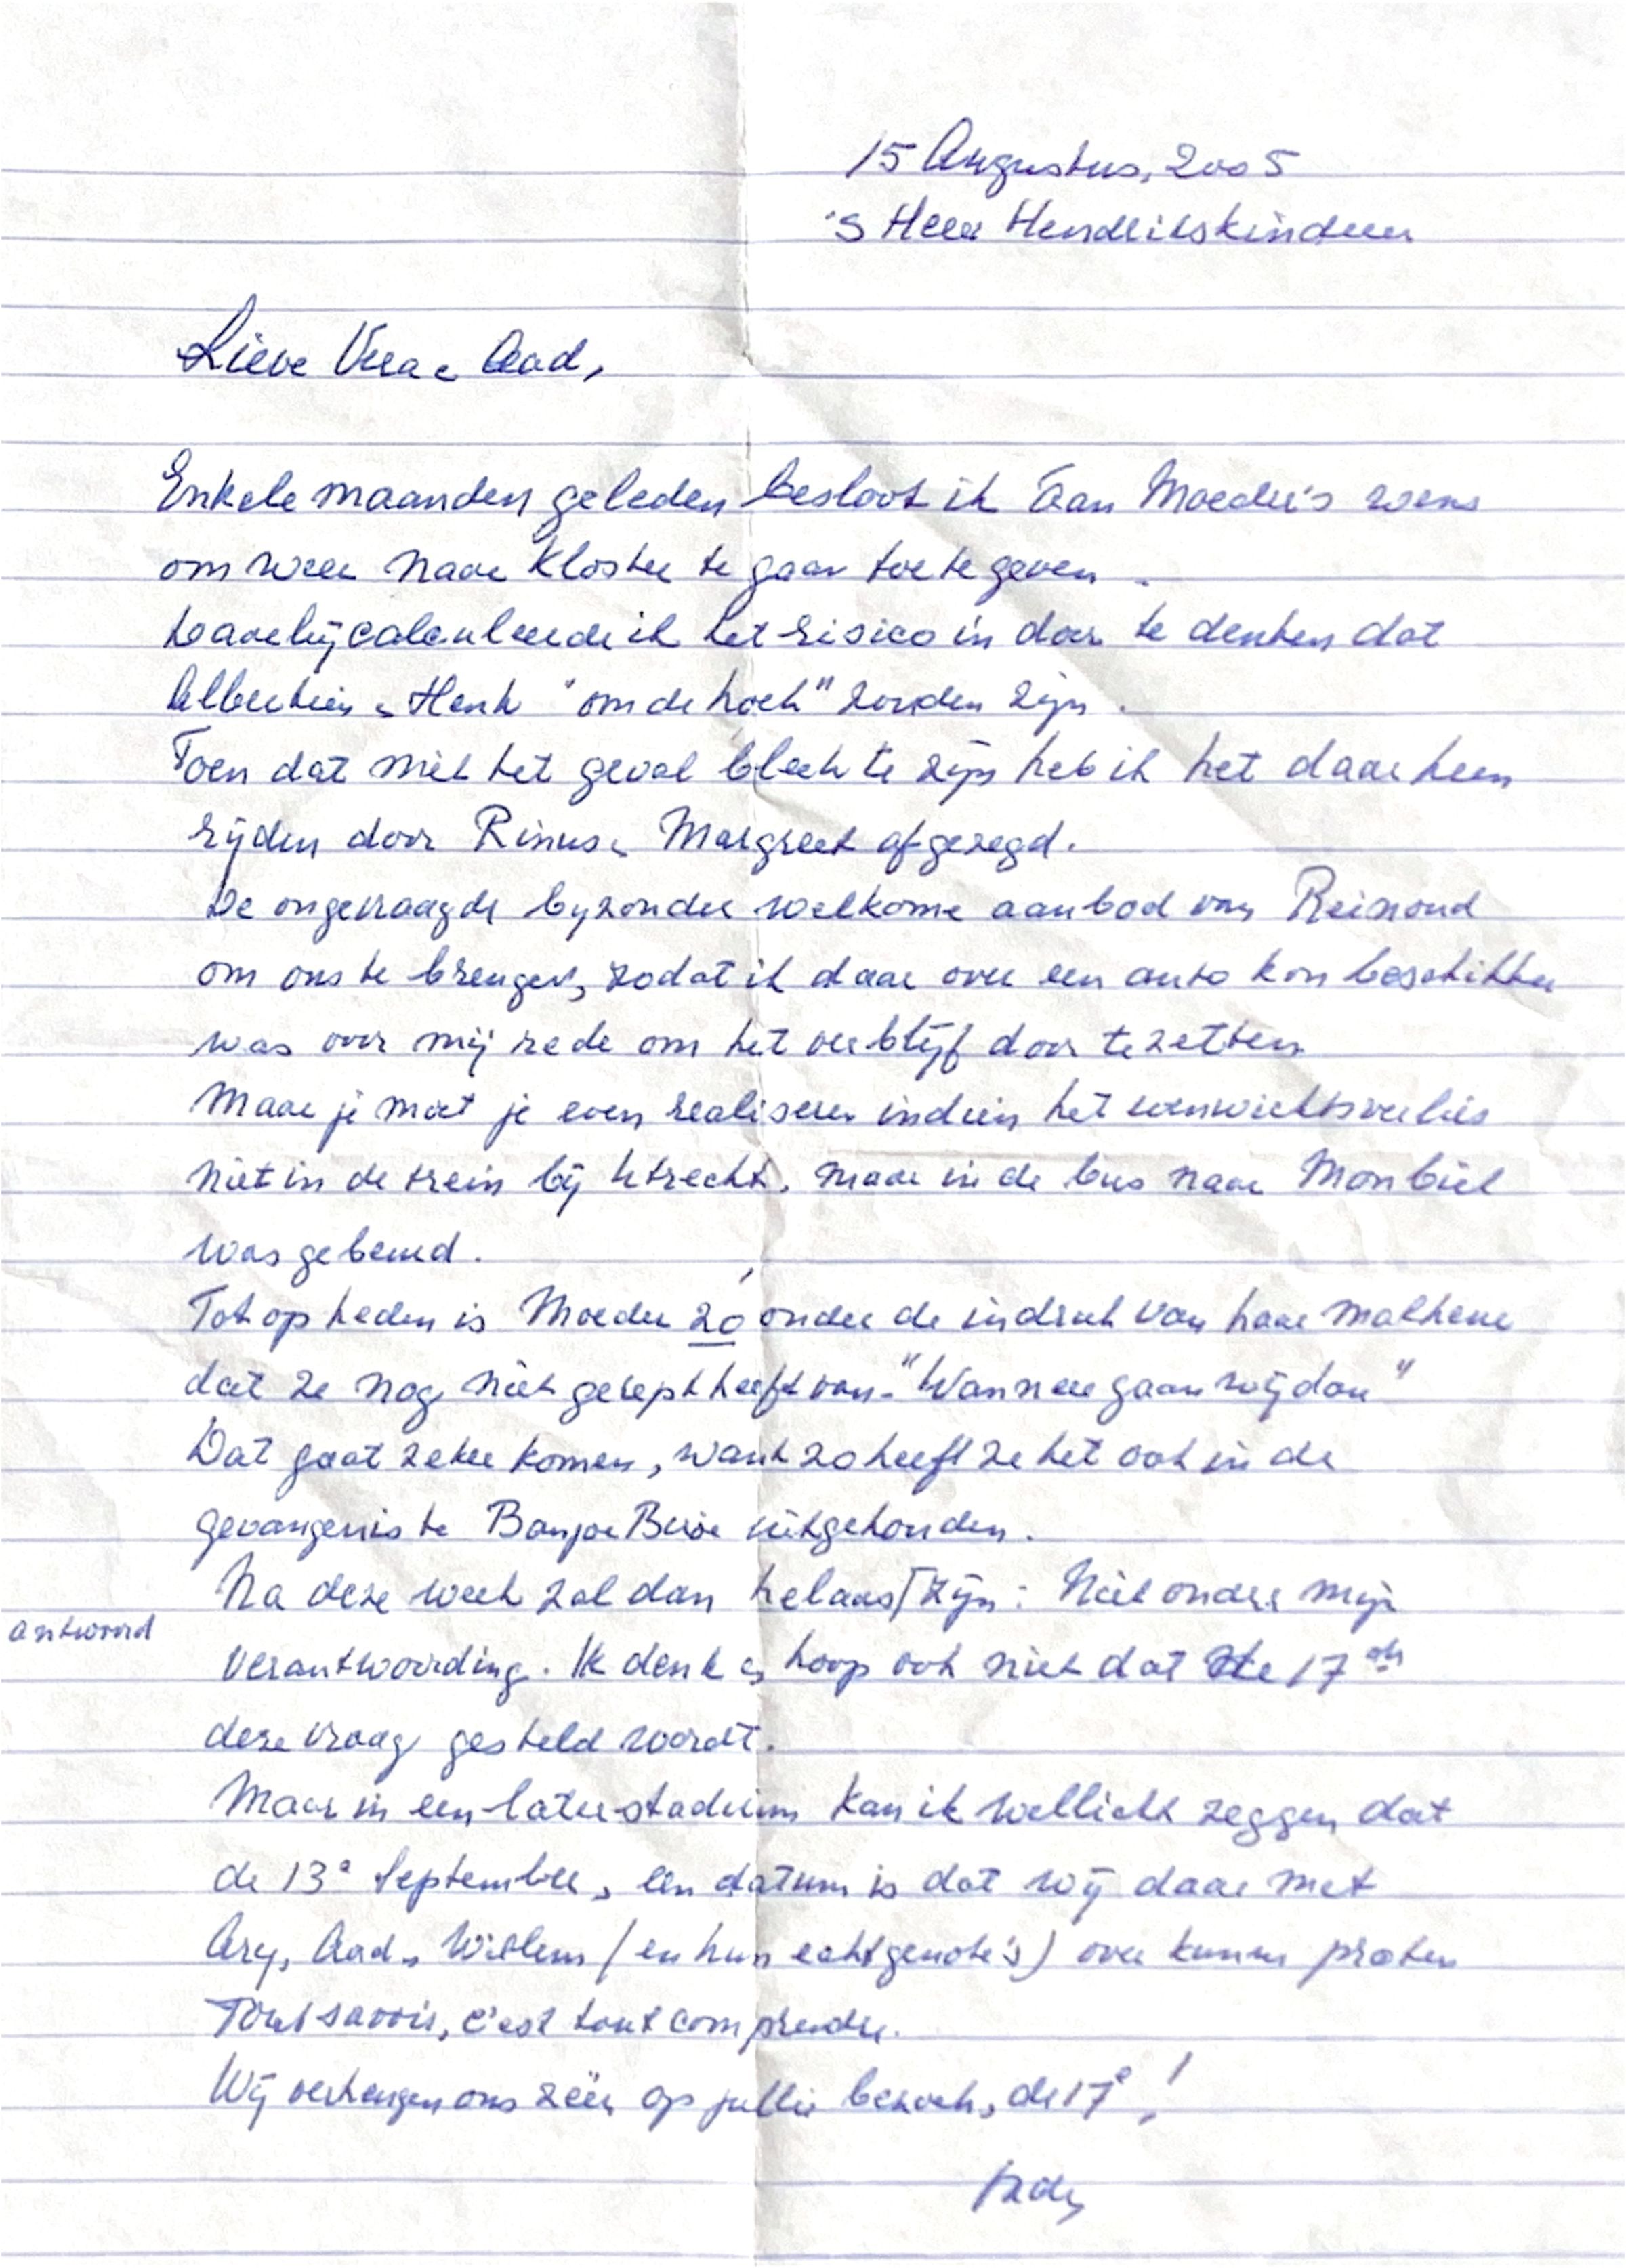 15 Augustus, 2005
's Heer Hendrikskinderen
Lieve Vera & Aad,
Enkele maanden geleden besloot ik aan Moeder's wens
om weer naar Kloster te gaan toe te geven.
Daarbij calculeerde ik het risico in door te denken dat
Albertien & Henk "om de hoek" zouden zijn.
Toen dat niet het geval bleek te zijn heb ik het daarheen
rijden door Rinus & Margreet afgezegd.
De ongevraagde byzonder welkome aanbod van Reinoud
om ons te brengen, zodat ik daar over een auto kon beschikken
was voor mij rede om het verblijf door te zetten
Maar je moet je even realiseren indien het evenwichtsverlies
niet in de trein bij Utrecht, maar in de bus naar Monbiel
was gebeurd.
Tot op heden is Moeder zó onder de indruk van haar malheur
dat ze nog niet gerept heeft van - "Wanneer gaan wij dan"
Dat gaat zeker komen, want zo heeft ze het ook in de
gevangenis te Banjoe Biroe uitgehouden.
Na deze week zal dan helaas ⌈zijn: Niet onder mijn
antwoord
verantwoording. Ik denk & hoop ook niet dat de 17de
deze vraag gesteld wordt.
Maar in een later stadium kan ik wellicht zeggen dat
de 13e September, een datum is dat wij daar met
Ary, Aad & Willem (en hun echtgenote's) over kunnen praten
Tout savoir, c'est tout comprendre.
Wij verheugen ons zéér op jullie bezoek, de 17e!